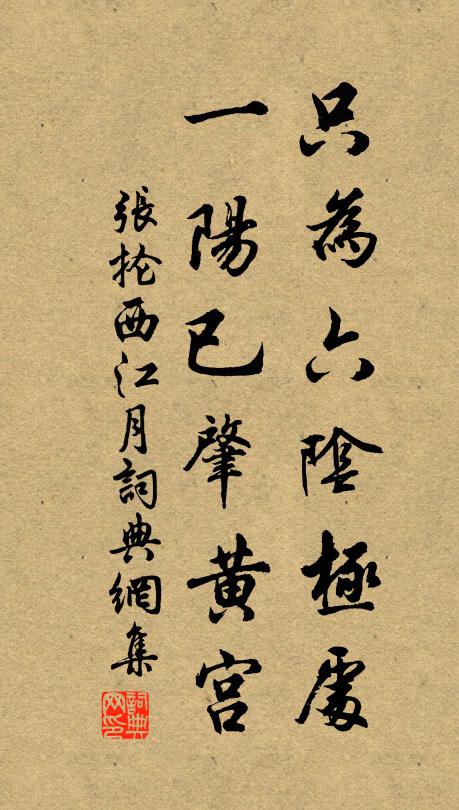 只為六陰極處
一陽已肇黃宮
張掄西江月詞典網集
詞典網印